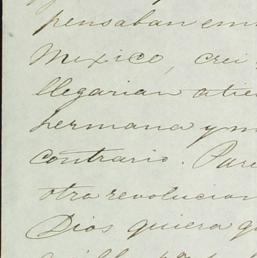 pensaban em
Mexico, crei
llegarian a tie
hermana y m
contrario. Pare
otra revolucion
Dios quiera q